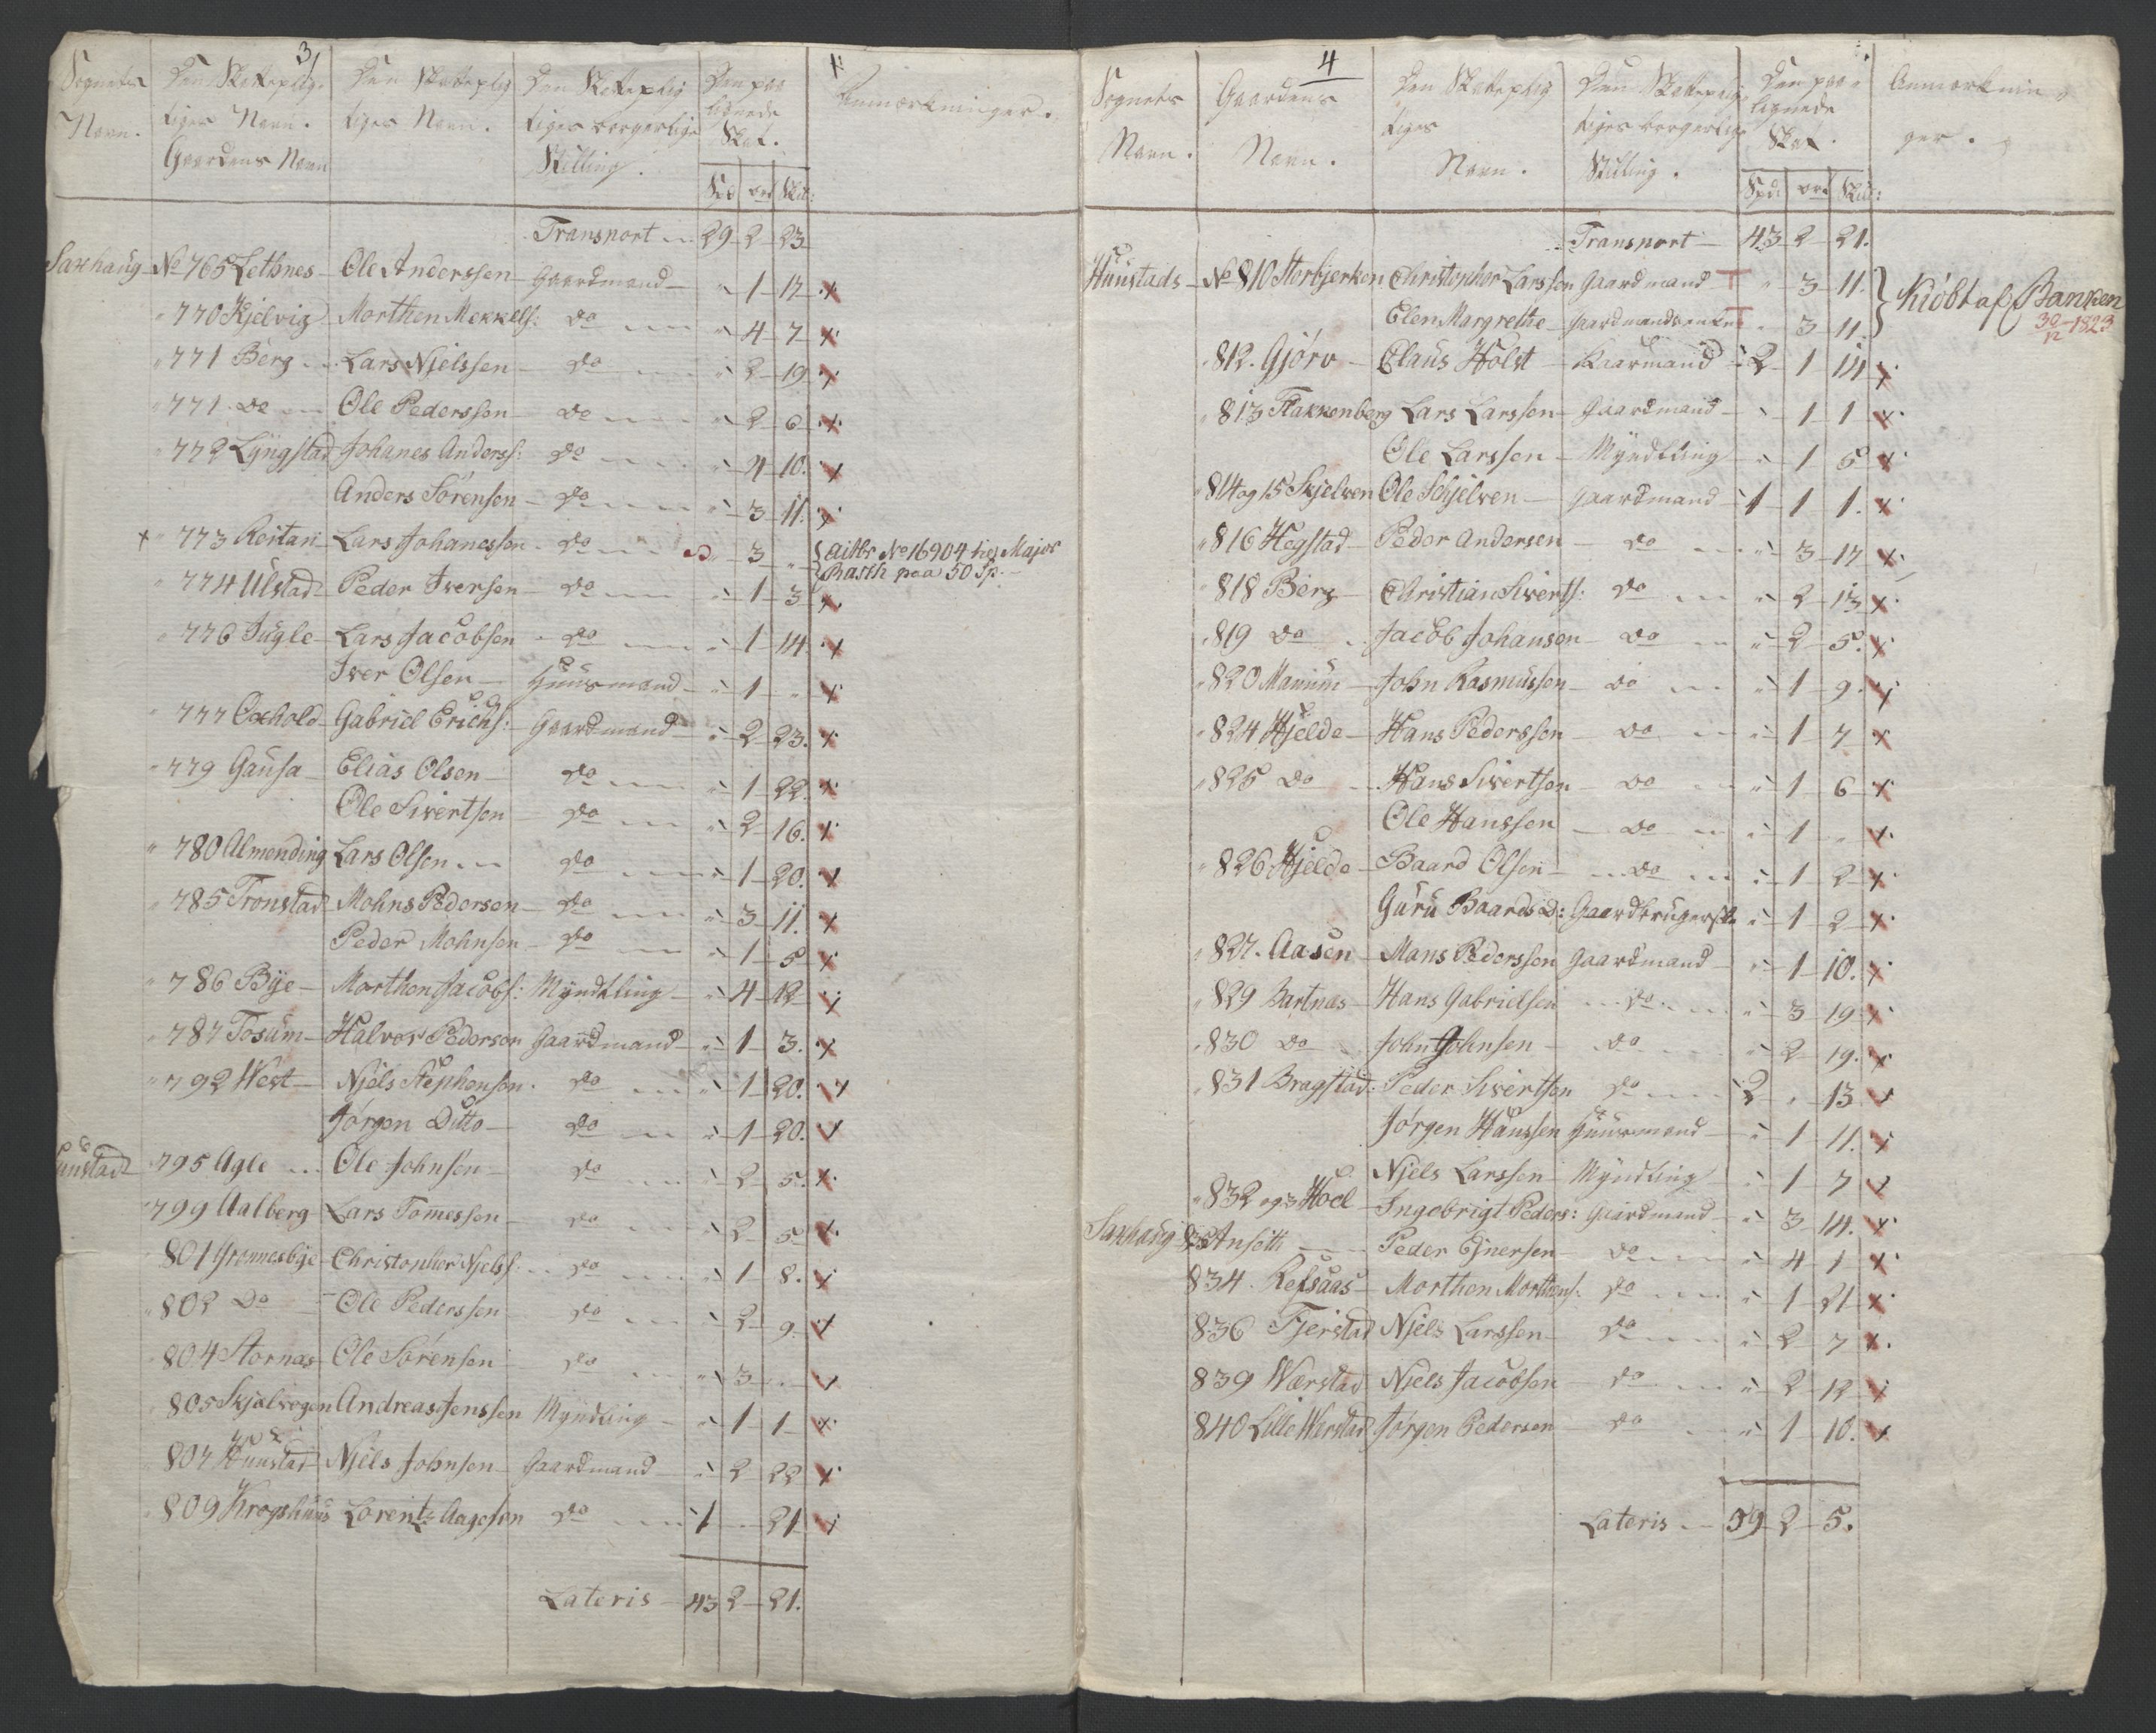 3
Sognets Navn. Den Skatteplig- tiges Navn. Gaardens Navn Den Skatteplig tiges Navn. Den Skatteplig tiges borgerlige Stilling. Den paa lignede Skat. Anmærkninger.
Spd ort Skil:
Transport 29 2 23
Saxhaug No 765 Lethnes Ole Anderssen Gaardmand " 1 17 x
" 770 Kjelvig Morthen Mekkels: do " 4 7 x
" 771 Berg Lars Njelssen do " 2 19 x
" 771 do Ole Pederssen do " 2 6 x
" 772 Lyngstad Johanes Anderss: do " 4 10. x
Anders Sørensen do " 3 11. x
x " 773 Reitan Lars Johanessen do " 3 " No 16904 hos Major Basth paa 50 Sp.
" 774 Ulstad Peder Iversen do " 1 3 x
" 776 Jugle Lars Jacobsen do " 1 14 x
Iver Olsen Huusmand " 1 " x
" 777 Oxhold Gabriel Erichs: Gaardmand " 2 23. x
" 779 Gausa Elias Olsen do " 1 22. x
Ole Sivertsen do " 2 16. x
" 780 Almending Lars Olsen do " 1 20. x
" 785 Tronstad Mohns Pedersen do " 3 11. x
Peder Mohnsen do " 1 5 x
" 786 Bye Morthen Jacobs: Myndtling " 4 12 x
" 787 Tosum Halvor Pedersen Gaardmand " 1 3. x
" 792 West Njels Stephensen do " 1 20. x
Jørgen Ditto do " 1 20. x
unstad " 795 Agle Ole Johnsen do " 2 5. x
" 799 Aalberg Lars Tomessen do " 2 5 x
801 Grønnesbye Christopher Njelss: do " 1 8. x
" 802 Do Ole Pederssen do " 2 9. x
" 804 Stornas Ole Sørensen do " 3 " x
" 805 Skjelvogen Andreas Jenssen Myndling " 1 1 x
" 807 Huustad Njels Johnsen Gaardmand " 2 22 x
" 809 Krogshuus Lorentz Aagesen do 1 " 21 x
Lateris 43 2 21.
4
Sognets Navn. Gaardens Navn. Den Skatteplig tiges Navn. Den Skatteplig tiges borgerlige Stilling. Den paa- lignede Skat. Anmærkninger.
Spd ort Skil:
Transport 43 2 21.
Huustads No 810 Sterbjerken Christopher Larssen Gaardmand " 3 11. } Kiøbt af Banken
Elen Margrethe Gaardmandsenke " 3 11. 30/12 1823
" 812. Gjørv Claus Holst Kaarmand 2 1 14 x
" 813 Flakkenberg Lars Larssen Gaardmand " 1 1 x
Ole Larssen Myndtling " 1 5 x
" 814 og 15 Skjelven Ole Schjelven Gaardmand 1 1 1. x
" 816 Hegstad Peder Andersen do " 3 17 x
" 818 Berg Christian Siverts: do " 2 13 x
" 819 do Jacob Johansen do " 2 5. x
" 820 Manum John Rasmussen do " 1 9. x
" 824 Hjelde Hans Pederssen do " 1 7 x
" 825 do Hans Sivertsen do " 1 6 x
Ole Hanssen do " 1 " x
" 826 Hjelde Baard Olsen do " 1 2 x
Guru Baards D: Gaardbrugerske " 1 2 x
" 827. Aasen Mans Pederssen Gaardmand " 1 10. x
" 829 Bartnas Hans Gabrielsen do " 3 19 x
" 830 Do John Johnsen do " 2 19. x
" 831 Bragstad Peder Sivertsen do 2 " 13 x
Jørgen Hanssen Huusmand " 1 11. x
Njels Larssen Myndling " 1 7 x
" 832 og 3 Hoel Ingebrigt Peders: Gaardmand " 3 14. x
Saxhaug Ansetti Peder Ejnersen do " 4 1 x
834. Refsaas Morthen Mortens: do " 1 21 x
836 Fjerstad Njels Larssen do " 2 7 x
839 Wærstad Njels Jacobsen do " 2 12 x
840 Lille Wærstad Jørgen Pedersen do " 1 10. x
Lateris 59 2 5.